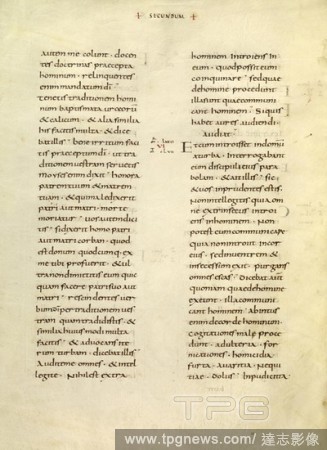 + SECUNDUM +
autem me colunt · docen
tes doctrinas praecepta
hominum · relinquentes
enim mandatum di
tenetis traditionem homi
num baptismata urceoru
& calicum · & alia similia
his facitis multa · & dice
bat illis · bene irritum faci
tis praeceptum di · ut tra
ditionem uestram seruetis
moyses enim dixit · honora
patrem tuum & matrem
tuam · & qui maledixerit
patri aut matri · morte
moriatur · uos autem dici
tis · si dixerit homo patri
aut matri corban · quod
est donum quodcumq; ex
me tibi profuerit · & ul
tra non dimittitis eum quic
quam facere patri suo aut
matri · rescindentes uer
bum di per traditionem ues
tram quam tradidistis · &
similia huius modi multa
facitis · & aduocans ite
rum turbam · dicebat illis
audite me omnes · & intel
legite · Nihil est extra
hominem introiens in
eum · quod possit eum
coinquinare · sed quae
de homine procedunt
illa sunt quae communi
cant hominem · Si quis
habet aures audiendi
audiat
Et cum introisset in domum
a turba · interrogabant
eum discipuli eius para
bolam · & ait illis · sic
& uos inprudentes estis ·
Non intellegitis quia om
ne extrinsecus introi
ens in hominem · Non
potest eum communicare
quia non introit in cor
eius · sed in uentrem &
in secessum exit · purgans
omnes escas · Dicebat aut
quoniam quae de homine
exeunt · illa communi
cant hominem · ab intus
enim de corde hominum
cogitationes malae proce
dunt · adulteria · for
nicationes · homicidia
furta · auaritia · nequi
tiae · dolus · inpudicitia
TPG
www.tpgnews.com/達志影像